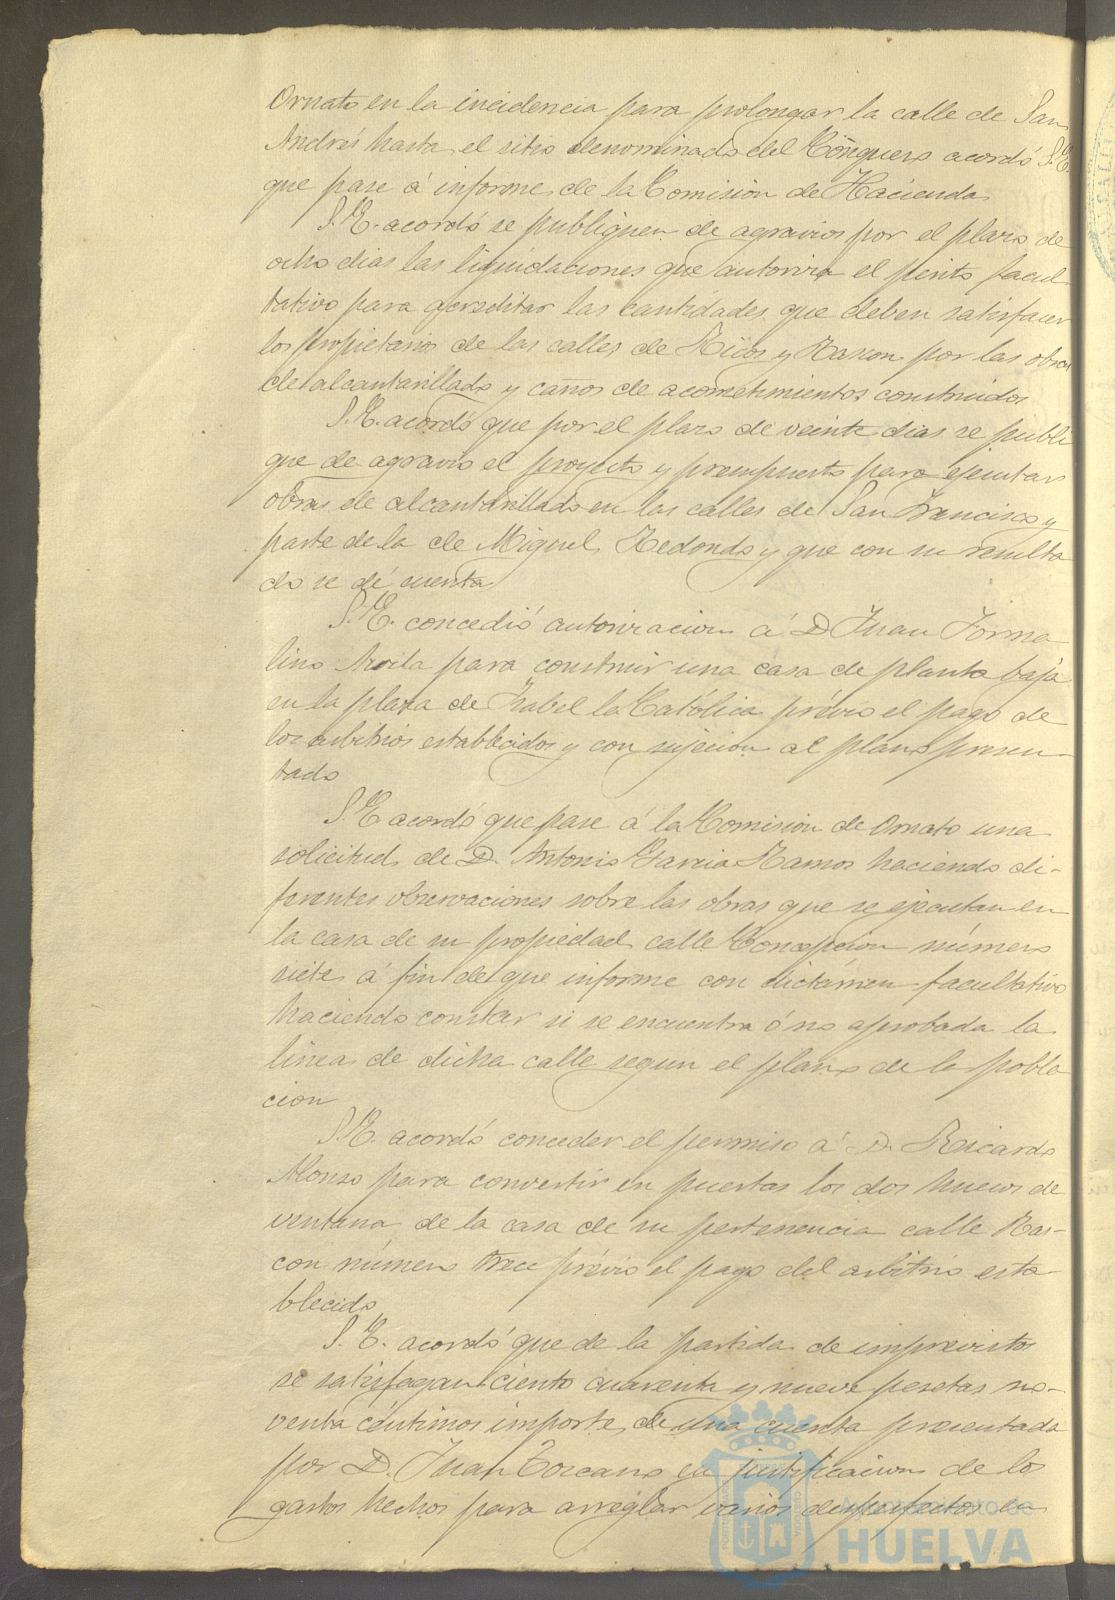 Ornato en la incidencia para prolongar la calle de San
Andrés hasta el sitio denominado del Conquero acordó S.E.
que pase á informe de la Comision de Hacienda
S.E. acordó se publiquen de agravios por el plazo de
ocho dias las liquidaciones que autoriza el perito facul-
tativo para acreditar las cantidades que deben satisfacer
los propietarios de las calles de Ricos y Rascon por las obras
de alcantarillado y caños de acometimientos construidos
S.E. acordó que por el plazo de veinte dias se publi
que de agravio el proyecto y presupuesto para ejecutar
obras de alcantarillado en las calles de San Francisco y
parte de la de Miguel Redondo y que con su resulta
do se dé cuenta
S.E. concedió autorizacion á D. Juan
para construir una casa de planta baja
en la plaza de Isabel la Católica prévio el pago de
los arbitrios establecidos y con sujecion al plano presen-
tado
S.E. acordó que pase á la Comision de Ornato una
solicitud de D. Antonio Garcia Ramos haciendo di-
ferentes observaciones sobre las obras que se ejecutan en
la casa de su propiedad calle Concepcion número
siete á fin de que informe con dictámen facultativo
haciendo constar si se encuentra ó no aprobada la
linea de dicha calle segun el plano de la pobla
cion
S.E. acordó conceder el permiso á D. Ricardo
Alonso para convertir en puertas los dos huecos de
ventana de la casa de su pertenencia calle Ras-
con número trece prévio el pago del arbitrio esta
blecido
S.E. acordó que de la partida de imprevistos
se satisfagan ciento cuarenta y nueve pesetas no-
venta céntimos importe de una cuenta presentada
por D. Juan Toscano en justificacion de los
gastos hechos para arreglar varios desperfectos en
Ayuntamiento de
HUELVA